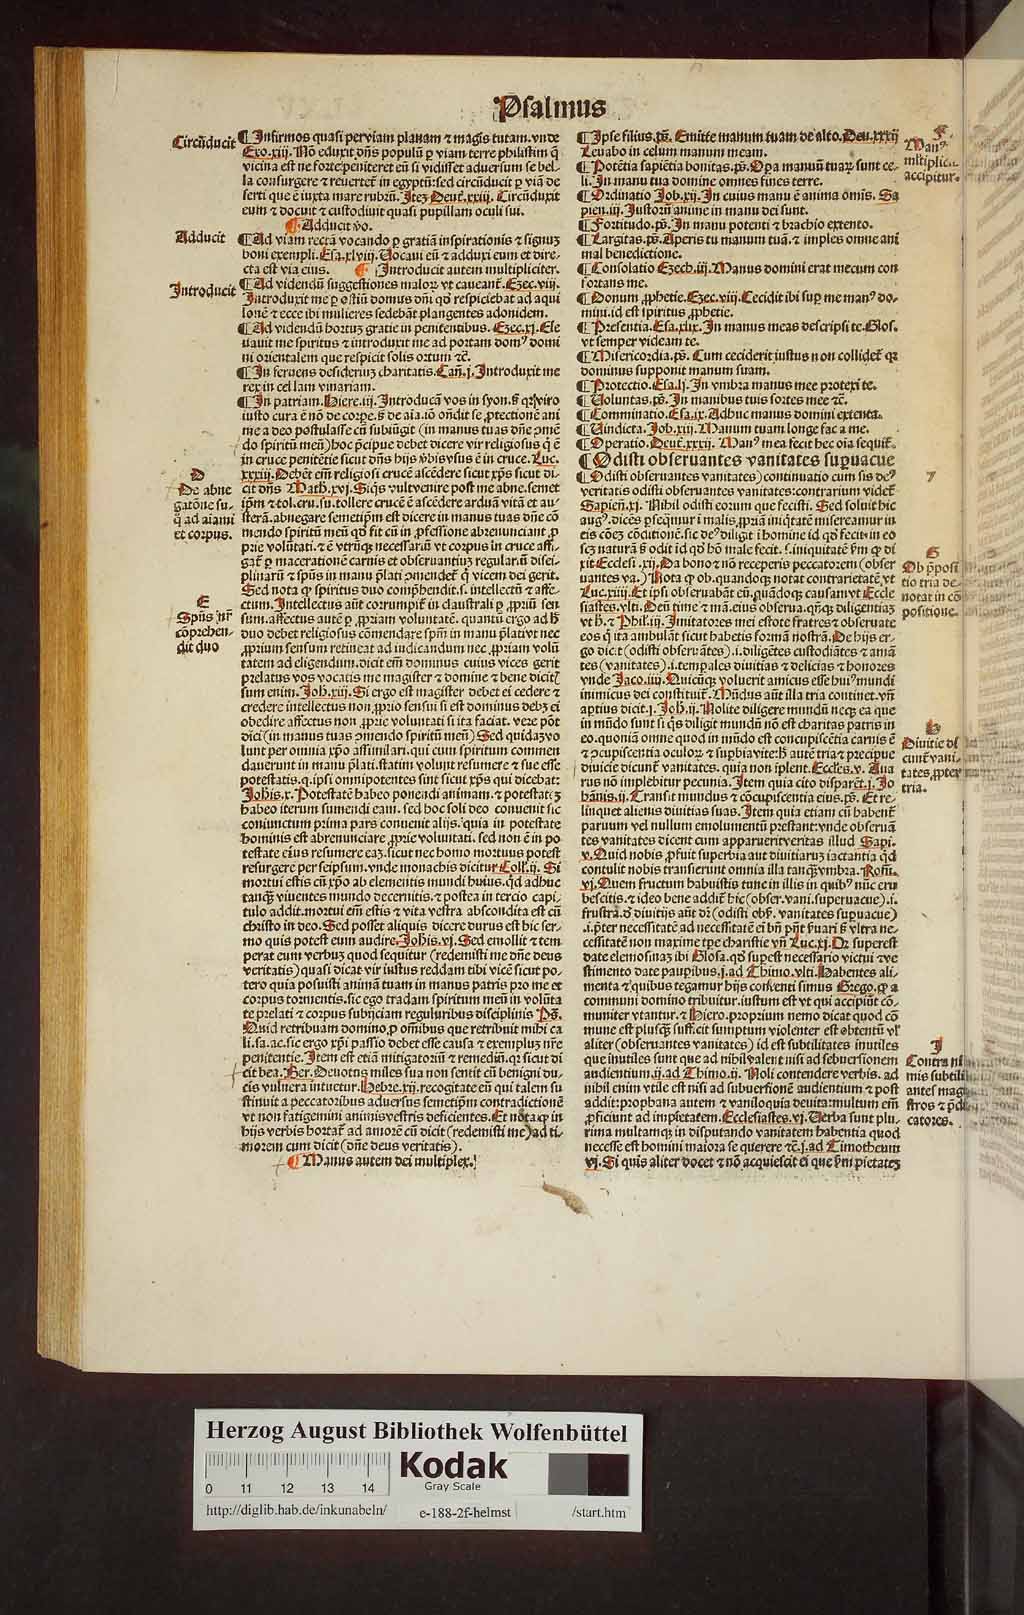 Psalmus
Circũducit
¶ Infirmos quasi per viam planam ⁊ magis tutam. vnde
Exo. xiij. Nõ eduxit dñs populũ ꝑ viam terre philistim q̃
vicina est ne forte peniteret eũ si vidisset aduersum se bel-
la consurgere ⁊ reuerteret̃ in egyptũ: sed circũducit ꝑ viã de
serti que ẽ iuxta mare rubrũ. Itẽ Deut̃. xxxij. Circũduxit
eum ⁊ docuit ⁊ custodiuit quasi pupillam oculi sui.
¶ Adducit v̊o.
Adducit
¶ Ad viam rectã vocando ꝑ gratiã inspirationis ⁊ signũ
boni exempli. Esa. xlviij. Vocaui eũ ⁊ adduxi eum et dire-
cta est via eius. ¶ Introducit autem multipliciter.
Introducit
¶ Ad videndũ suggestiones maloꝝ vt caueant̃. Ezec. viij.
Introduxit me ꝑ ostiũ domus dñi qđ respiciebat ad aqui
lonẽ ⁊ ecce ibi mulieres sedebãt plangentes adonidem.
¶ Ad videndũ hortuꝫ gratie in penitentibus. Ezec. xj. Ele
uauit me spiritus ⁊ introduxit me ad portam domꝰ domi
ni orientalem que respicit solis ortum ⁊c̃.
¶ In feruens desideriuꝫ charitatis. Cañ. j. Introduxit me
rex in cellam vinariam.
¶ In patriam. Hiere. iij. Introducã vos in syon.
D
De abne
gatõne su-
q̃ ad aiam
et corpus.
iusto cura ẽ nõ de corpe. s̃ de aia. iõ oñdit se ꝓtectionẽ ani
me a deo postulasse cũ subiũgit (in manus tuas dñe ↄmẽ
do spiritũ meũ) hoc p̃cipue debet dicere vir religiosus q̃ ẽ
in cruce penitẽtie sicut dñs hijs
xxxiij. Debẽt em̃ religiosi crucẽ ascẽdere sicut xp̃s sicut di-
cit dñs Math̃. xvj. Siq̃s vult venire post me abne. semet
ip̃m ⁊ tol. cru. su. tollere crucẽ ẽ ascẽdere arduã vitã et au-
sterã. abnegare semetip̃m est dicere in manus tuas dñe cõ
mendo spiritũ meũ qđ fit cũ in ꝓfessione abrenunciant̃ ꝓ
prie volũtati. ⁊ ẽ vtrũqꝫ necessariũ vt corpus in cruce affi-
gat̃ ꝑ macerationẽ carnis et obseruantiaꝫ regulariũ disci-
plinarũ ⁊ sp̃ũs in manu p̃lati ↄmendet̃ q̃ vicem dei gerit.
E
Sp̃ũs nr̃
cõprehen-
dit duo
Sed nota ꝙ spiritus duo comp̃hendit. s. intellectũ ⁊ affe-
ctum. Intellectus aũt corrumpit̃ in claustrali ꝑ ꝓpriũ sen
sum. affectus autẽ ꝑ ꝓpriam voluntatẽ. quantũ ergo ad
duo debet religiosus cõmendare sp̃m in manu p̃lati vt nec
ꝓprium sensum retineat ad iudicandum nec ꝓpriam volũ
tatem ad eligendum. dicit em̃ dominus cuius vices gerit
prelatus vos vocatis me magister ⁊ domine ⁊ bene dicit̃
sum enim. Joh̃. xiij. Si ergo est magister debet ei cedere ⁊
credere intellectus non ꝓprio sensui si est dominus debꝫ ei
obedire affectus non ꝓprie voluntati si ita faciat. vere põt
dici (in manus tuas ↄmendo spiritũ meũ) Sed quidaꝫ vo
lunt per omnia xp̃o assimilari. qui cum spiritum commen
dauerunt in manu p̃lati. statim volunt resumere ⁊ sue esse
potestatis. q. ipsi omnipotentes sint sicut xp̃s qui dicebat:
Joh̃is. x. Potestatẽ habeo ponendi animam. ⁊ potestatẽ
habeo iterum sumendi eam. sed hoc soli deo conuenit sic
coniunctum prima pars conuenit alijs. quia in potestate
hominis est abrenunciare ꝓprie voluntati. sed non ẽ in po
testate eius resumere eaꝫ. sicut nec homo mortuus potest
resurgere per seipsum. vnde monachis dicitur Coll̃. ij. Si
mortui estis cũ xp̃o ab elementis mundi huius. q̃d adhuc
tanqꝫ viuentes mundo decernitis. ⁊ postea in tercio capi-
tulo addit. mortui em̃ estis ⁊ vita vestra abscondita est cũ
christo in deo. Sed posset aliquis dicere durus est hic ser-
mo quis potest eum audire. Joh̃is. vj. Sed emollit ⁊ tem
perat eum verbuꝫ quod sequitur (redemisti me dñe deus
veritatis) quasi dicat vir iustus reddam tibi vicẽ sicut po-
tero quia posuisti animã tuam in manus patris pro me et
corpus tormentis. sic ego tradam spiritum meũ in volũta
te prelati ⁊ corpus subijciam regularibus disciplinis Pš.
Quid retribuam domino ꝓ om̃ibus que retribuit mihi ca
li. sa. ac. sic ergo xp̃i passio debet esse causa ⁊ exempluꝫ nr̃e
penitentie. Item est etiã mitigatoriũ ⁊ remediũ. qꝛ sicut di
cit bea. Ber. Deuotus miles sua non sentit cũ benigni du-
cis vulnera intuetur. Hebre. xij. recogitate eũ qui talem su
stinuit a peccatoribus aduersus semetip̃m contradictionẽ
vt non fatigemini animis vestris deficientes. Et nota ꝙ in
hijs verbis hortat̃ ad amorẽ cũ dicit (redemisti me) ad ti-
morem cum dicit (dñe deus veritatis).
¶ Manus autem dei multiplex.
¶ Ipse filius. pš. Emitte manum tuam de alto. Deu. xxxij
Leuabo in celum manum meam.
F
Manꝰ
multiplici.
accipitur.
¶ Potẽtia sapiẽtia bonitas. pš. Oꝑa manuũ tuaꝝ sunt ce-
li. In manu tua domine omnes fines terre.
¶ Ordinatio Job. xij. In cuius manu ẽ anima omĩs. Sa
pien. iij. Iustorũ anime in manu dei sunt.
¶ Fortitudo. pš. In manu potenti ⁊ brachio extento.
¶ Largitas. pš. Aperis tu manum tuã. ⁊ imples omne ani
mal benedictione.
¶ Consolatio Ezech. iij. Manus domini erat mecum con
fortans me.
¶ Donum ꝓphetie. Ezec. viij. Cecidit ibi suꝑ me manꝰ do-
mini. id est spiritus ꝓphetie.
¶ Presentia. Esa. xlix. In manus meas descripsi te. Glos.
vt semper videam te.
¶ Misericordia. pš. Cum ceciderit iustus non collidet̃ qꝛ
dominus supponit manum suam.
¶ Protectio. Esa. lj. In vmbra manus mee protexi te.
¶ Voluntas. pš. In manibus tuis sortes mee ⁊c̃.
¶ Comminatio. Esa. ix. Adhuc manus domini extenta.
¶ Vindicta. Job. xiij. Manum tuam longe fac a me.
¶ Operatio. Deut̃. xxxij. Manꝰ mea fecit hec oĩa
¶ Odisti obseruantes vanitates suꝑuacue
7
¶ Odisti obseruantes vanitates) continuatio cum sis deꝰ
veritatis odisti obseruantes vanitates: contrarium videt̃
Sapien. xj. Nihil odisti eorum que fecisti. Sed soluit hic
augꝰ. dicẽs ꝑsequimur ĩ malis ꝓpriã iniq̃tatẽ misereamur in
eis cõem cõditionẽ. sic deꝰ diligit ĩ homine id qđ fecit. in eo
scꝫ naturã s̃ odit id qđ hõ male fecit. s. iniquitatẽ
G
Ob p̃posi
tio tria de-
notat in cõ
positione.
xit Ecclesi. xij. Da bono ⁊ nõ receperis peccatorem (obser
uantes va.) Nota ꝙ ob. quandoqꝫ notat contrarietatẽ. vt
Luc. xiiij. Et ipsi obseruabãt eũ. quãdoqꝫ causam vt Eccle
siastes. vlti. Deũ time ⁊ mã. eius obserua. qñqꝫ diligentiaꝫ
⁊ Phil̃. iij. Imitatores mei estote fratres ⁊ obseruate
eos q̃ ita ambulãt sicut habetis formã nostrã. De hijs er-
go dic̃t (odisti obseruãtes) .i. diligẽtes custodiẽtes ⁊ amã
tes (vanitates) .i. tempales diuitias ⁊ delicias ⁊ honores
vnde Jaco. iiij. Quicũqꝫ voluerit amicus esse huiꝰ mundi
inimicus dei constituit̃. Mũdus aũt illa tria continet. vñ
aptius dicit. j. Joh̃. ij. Nolite diligere mundũ necqꝫ ea que
H
Diuitie di
cunt̃ vani-
tates ꝓpter
tria.
in mũdo sunt si q̃s diligit mundũ nõ est charitas patris in
eo. quoniã omne quod in mũdo est concupiscẽtia carnis ẽ
⁊ ↄcupiscentia oculoꝝ ⁊ suꝑbia vite: autẽ tria ⁊ precipue
diuicie dicunt̃ vanitates. quia non ĩplent. Eccles. v. Aua
rus nõ implebitur pecunia. Item quia cito disparẽt. j. Jo
hãnis. ij. Transit mundus ⁊ cõcupiscentia eius. pš. Et re-
linquet alienis diuitias suas. Item quia etiam cũ habent̃
paruum vel nullum emolumentũ prestant: vnde obseruã
tes vanitates dicent cum apparuerit veritas illud Sapi.
v. Quid nobis ꝓfuit superbia aut diuitiaruꝫ iactantia q̃d
contulit nobis transierunt omnia illa tanqꝫ vmbra. Rom̃.
vj. Quem fructum habuistis tunc in illis in quibꝰ nũc eru
bescitis. ⁊ ideo bene addit̃ hic (obser. vani. superuacue) .i.
frustra. đ diuitijs aũt dr̃ (odisti obš. vanitates suꝑuacue)
.i. p̃ter necessitatẽ
cessitatẽ non maxime tp̃e charistie vñ Luc. xj. Qđ superest
date elemosinaꝫ ibi Glosa. qđ suꝑest necessario victui ⁊ ve
stimento date pauꝑibus. j. ad Thimo. vlti. Habentes ali-
menta ⁊ quibus tegamur hijs contenti simus Grego. ꝙ a
communi domino tribuitur. iustum est vt qui accipiũt cõ-
muniter vtantur. ⁊ Hiero. proprium nemo dicat quod cõ
mune est plusqꝫ sufficit sumptum violenter est obtentũ
aliter (obseruantes vanitates) id est subtilitates inutiles
I
Contra ni
mis subtili
antes mag
stros ⁊ p̃di
catores.
que inutiles sunt que ad nihil valent nisi ad subuersionem
audientium. ij. ad Thimo. ij. Noli contendere verbis. ad
nihil enim vtile est nisi ad subuersionẽ audientium ⁊ post
addit: prophana autem ⁊ vaniloquia deuita: multum em̃
ꝓficiunt ad impietatem. Ecclesiastes. vj. Verba sunt plu-
rima multamqꝫ in disputando vanitatem habentia quod
necesse est homini maiora se querere ⁊c̃. j. ad Timotheum
vj. Si quis aliter docet ⁊ nõ acquiescit ei que pietatez
Herzog August Bibliothek Wolfenbüttel
Kodak
Gray Scale
0 11 12 13 14
http://diglib.hab.de/inkunabeln/ e-188-2f-helmst /start.htm